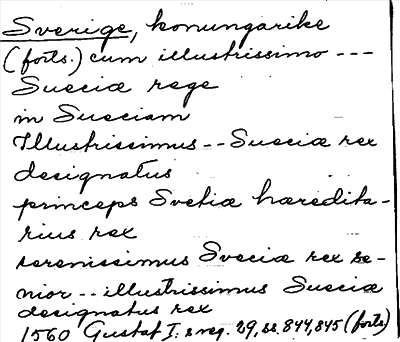 Sverige, konungarike
(forts.) cum illustrissimo ---
Sueciæ rege
in Sueciam
Illustrissimus -- Sueciæ rex
designatus
princeps Svetiæ hæredita-
rius rex
serenissimus Sveciæ rex se-
nior -- illustrissimus Sueciæ
designatus rex
1560 Gustaf I:s reg. 29, ss. 844, 845 (forts)